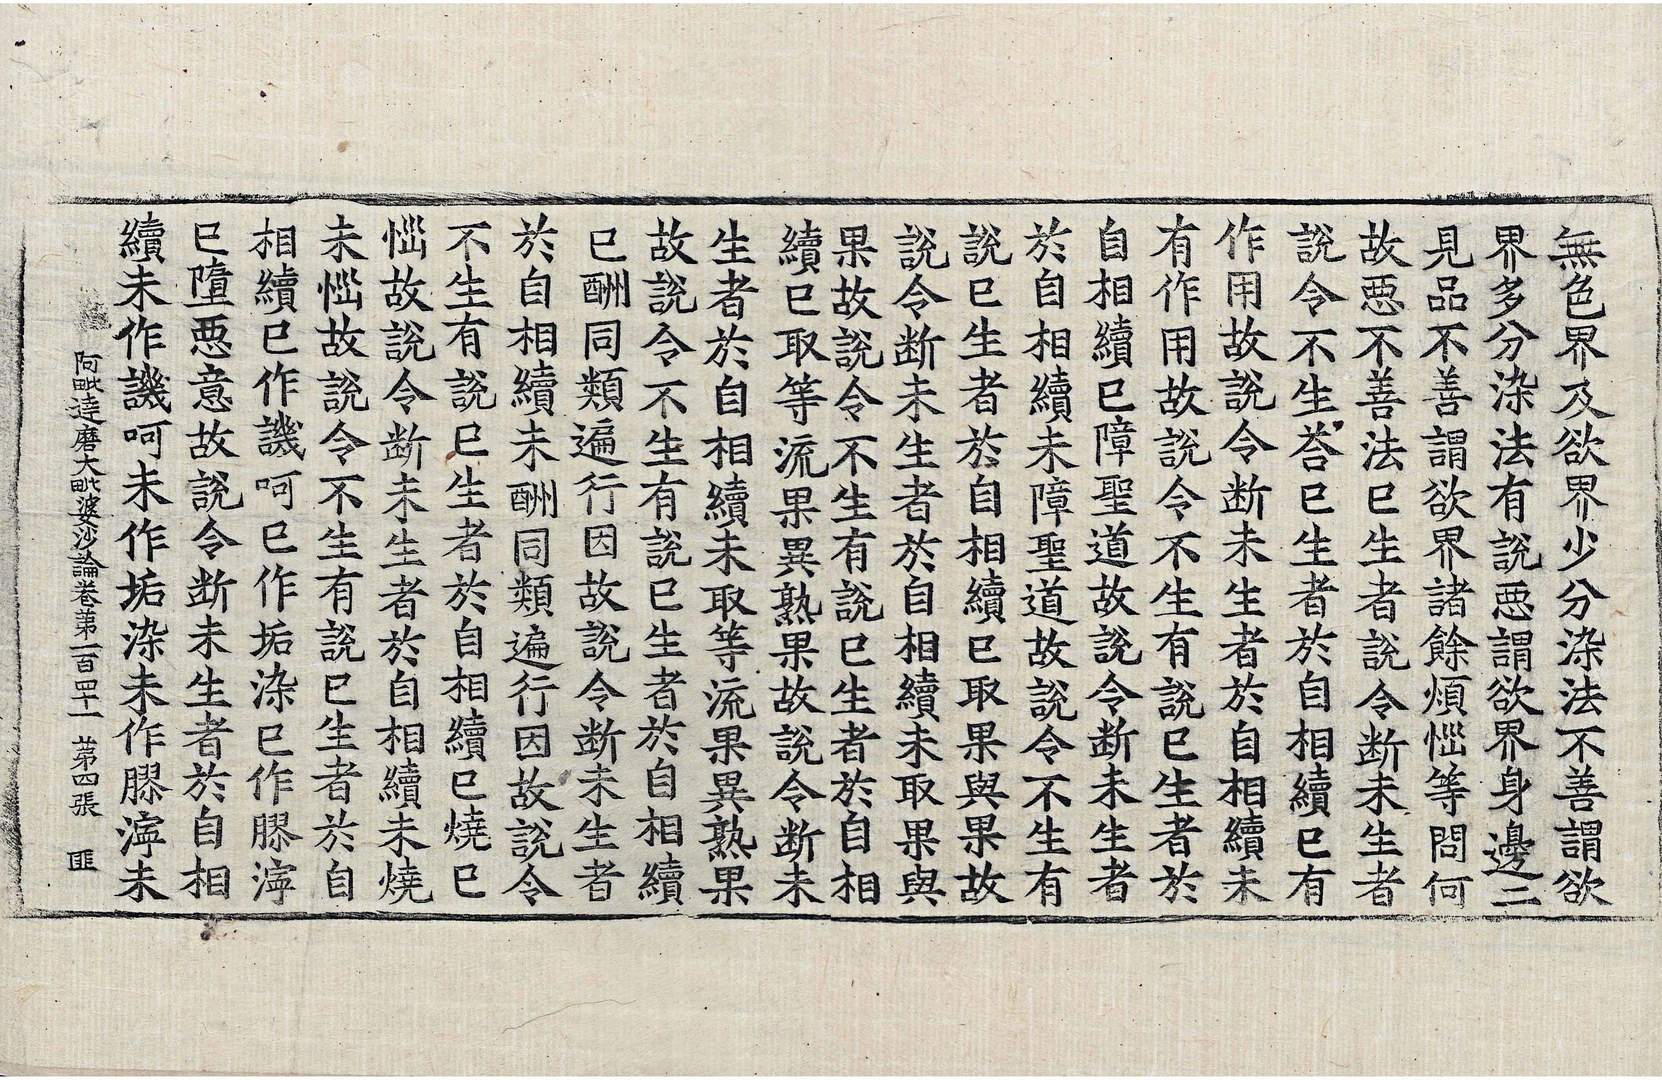 無色界及欲界少分染法不善謂欲
界多分染法有說惡謂欲界身邊二
見品不善謂欲界諸餘煩惱等問何
故惡不善法已生者說令斷未生者
說令不生荅已生者於自相續已有
作用故說令斷未生者於自相續未
有作用故說令不生有說已生者於
自相續已障聖道故說令斷未生者
於自相續未障聖道故說令不生有
說已生者於自相續已取果與果故
說令斷未生者於自相續未取果與
果故說令不生有說已生者於自相
續已取等流果異熟果故說令斷未
生者於自相續未取等流果異熟果
故說令不生有說已生者於自相續
已酬同類遍行因故說令斷未生者
於自相續未酬同類遍行因故說令
不生有說已生者於自相續已燒已
惱故說令斷未生者於自相續未燒
未惱故說令不生有說已生者於自
相續已作譏呵已作垢染已作膠濘
已墮惡意故說令斷未生者於自相
續未作譏呵未作垢染未作膠濘未
阿毗達磨大毗婆沙論卷第一百四十一 第四張 匪